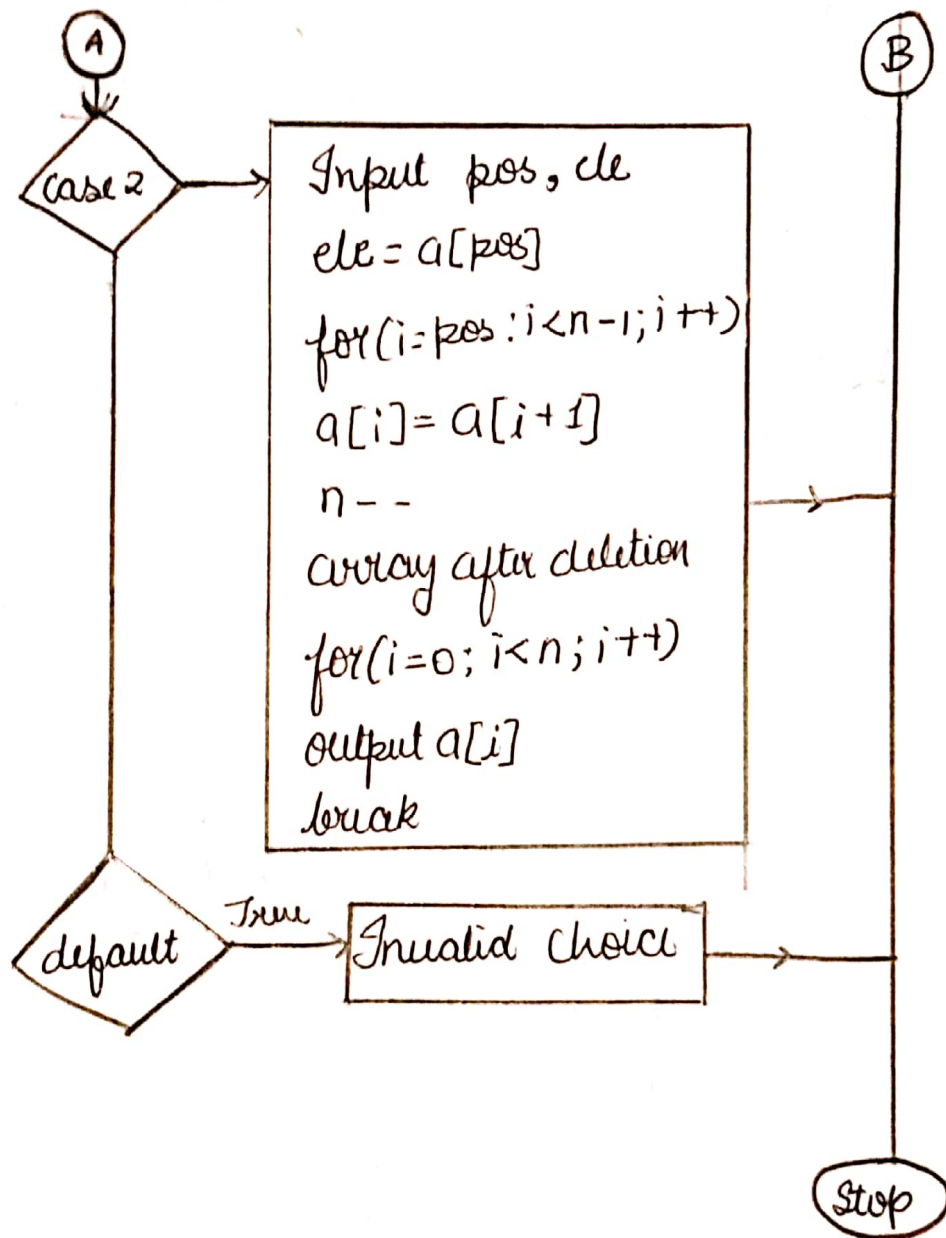 A
B
case 2
Input pos, ele
ele = a[pos]
for(i=pos: i<n-1; i++)
a[i] = a[i+1]
n--
array after deletion
for(i=0; i<n; i++)
output a[i]
break
default
True
Invalid choice
Stop